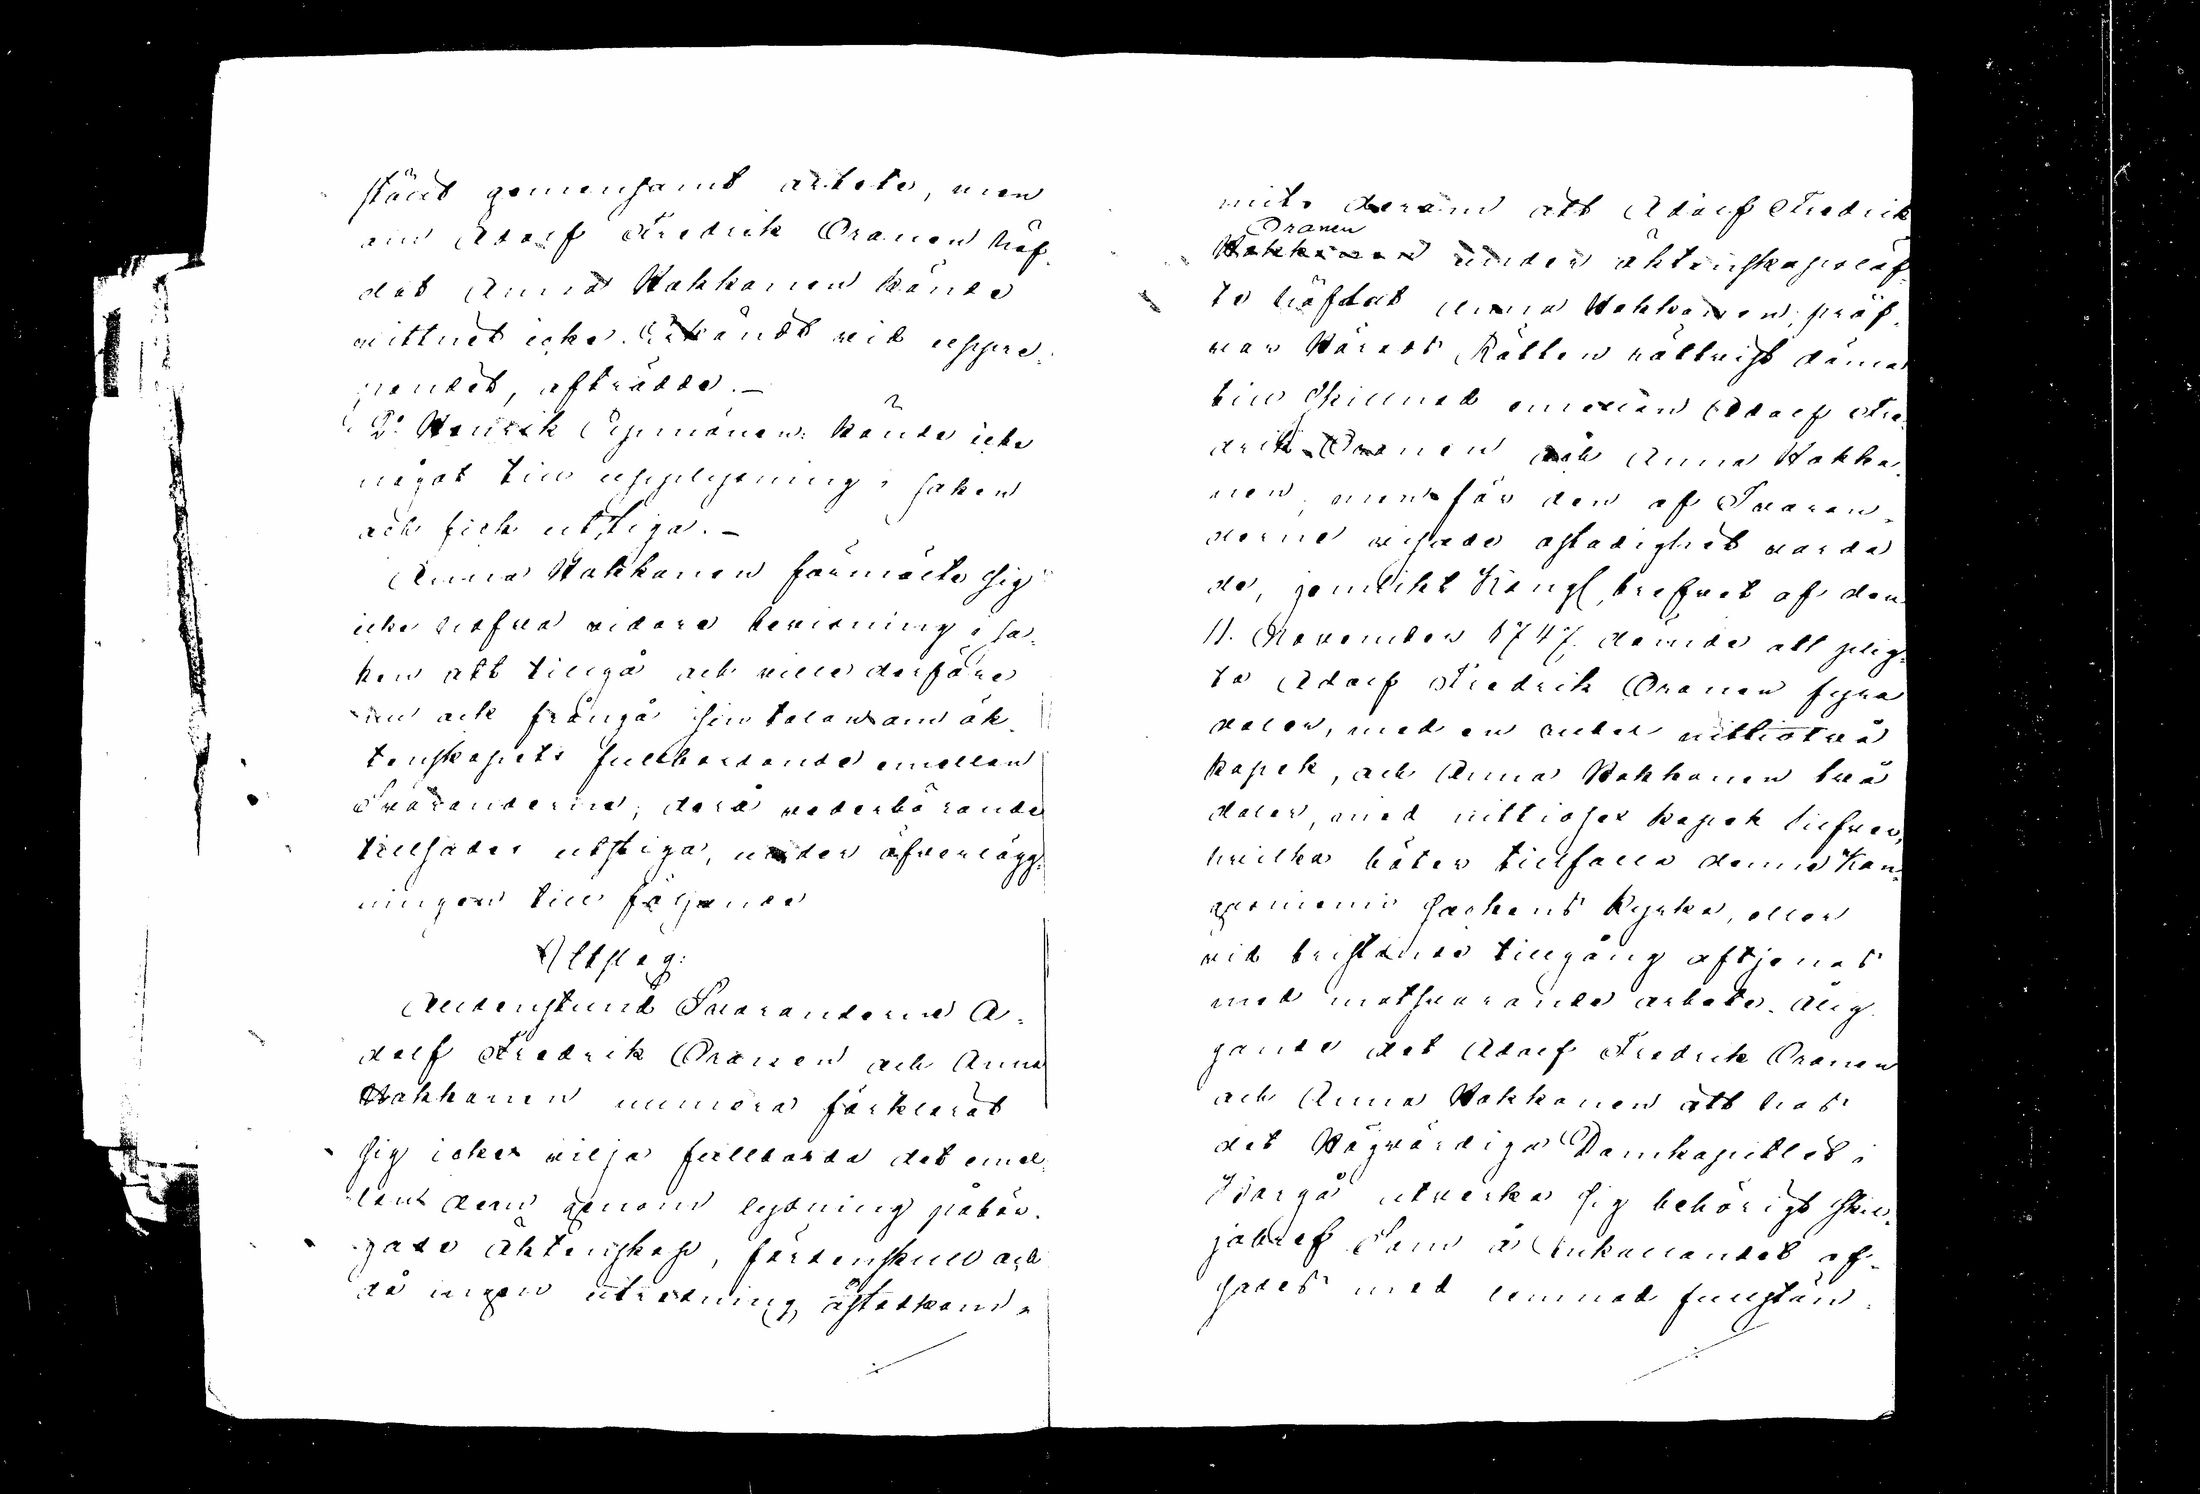 städt gemensamt arbete, men
om Adolf Fredrik Oranen häf-
dat Anna Hakkanen kände
vittnet icke. Erkändt vid uppre-
pandet, afträdde.—
2o Henrik Sipinänen: kände icke
något till upplysning i saken
och fick utstiga.—
Anna Hakkanen förmälte sig
icke hafva vidare bevisning i sa-
ken att tillgå och ville derföre
nu ock frångå sin talan om äk-
tenskapets fullbordande emellan
Svaranderne; derå vederbörande
tillsades utstiga, under öfverlägg-
ningen till följande
Utslag:
Alldenstund Svaranderne A-
dolf Fredrik Oranen och Anna
Hakkanen numera förklarat
sig icke vilja fullborda det emel-
lan dem genom lysning påbör-
jade äktenskap, fördenskull och
då ingen utredning åstadkom-
mits derom att Adolf Fredrik
Oranen
Hakkanen under äktenskapslöf-
te häfdat Anna Hakkanen, pröf-
var Härads Rätten rättvist döma
till skillnad emellan Adolf Fre-
drik Oranen och Anna Hakka-
nen, men för den af Svaran-
derne visade ostadighet varda
de, jemlikt Kongl. brefvet af den
11. November 1747, dömde att plig-
ta Adolf Fredrik Oranen fyra
daler, med en rubel nittiotvå
kopek, och Anna Hakkanen två
daler, med nittiosex kopek silfver,
hvilka böter tillfalla denne Kan-
gasniemi sockens Kyrka, eller
vid bristande tillgång aftjenas
med motsvarande arbete. Ålig-
gande det Adolf Fredrik Oranen
och Anna Hakkanen att hos
det Högvördiga Domkapitlet i
Borgå utverka sig behörigt skil-
jobref. Som å Inkallandet af-
sades med lemnad fullstän-